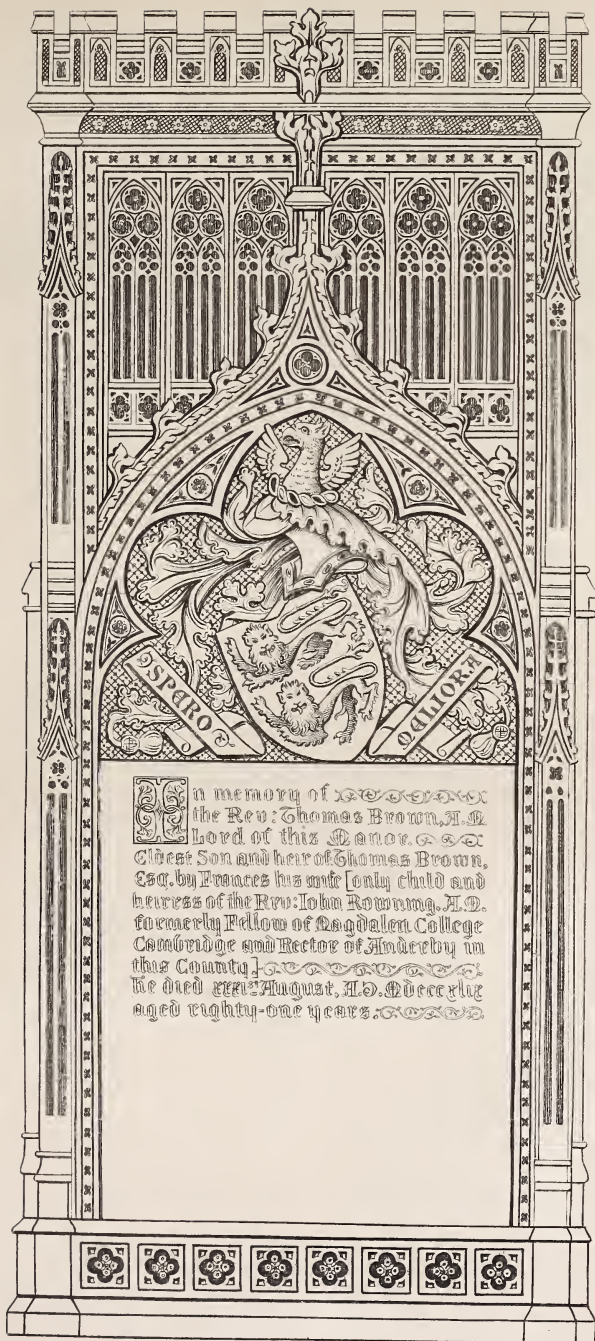 SPERO
MELIORA
In memory of
the Rev: Thomas Brown, A.M.
Lord of this Manor.
Eldest Son and heir of Thomas Brown,
Esq. by Frances his wife [only child and
heiress of the Rev: Iohn Rowning, A.M.
formerly Fellow of Magdalen College
Cambridge and Rector of Anderby in
this County]
He died xxxi.st August, A.D. Mdcccxlix
aged eighty-one years.